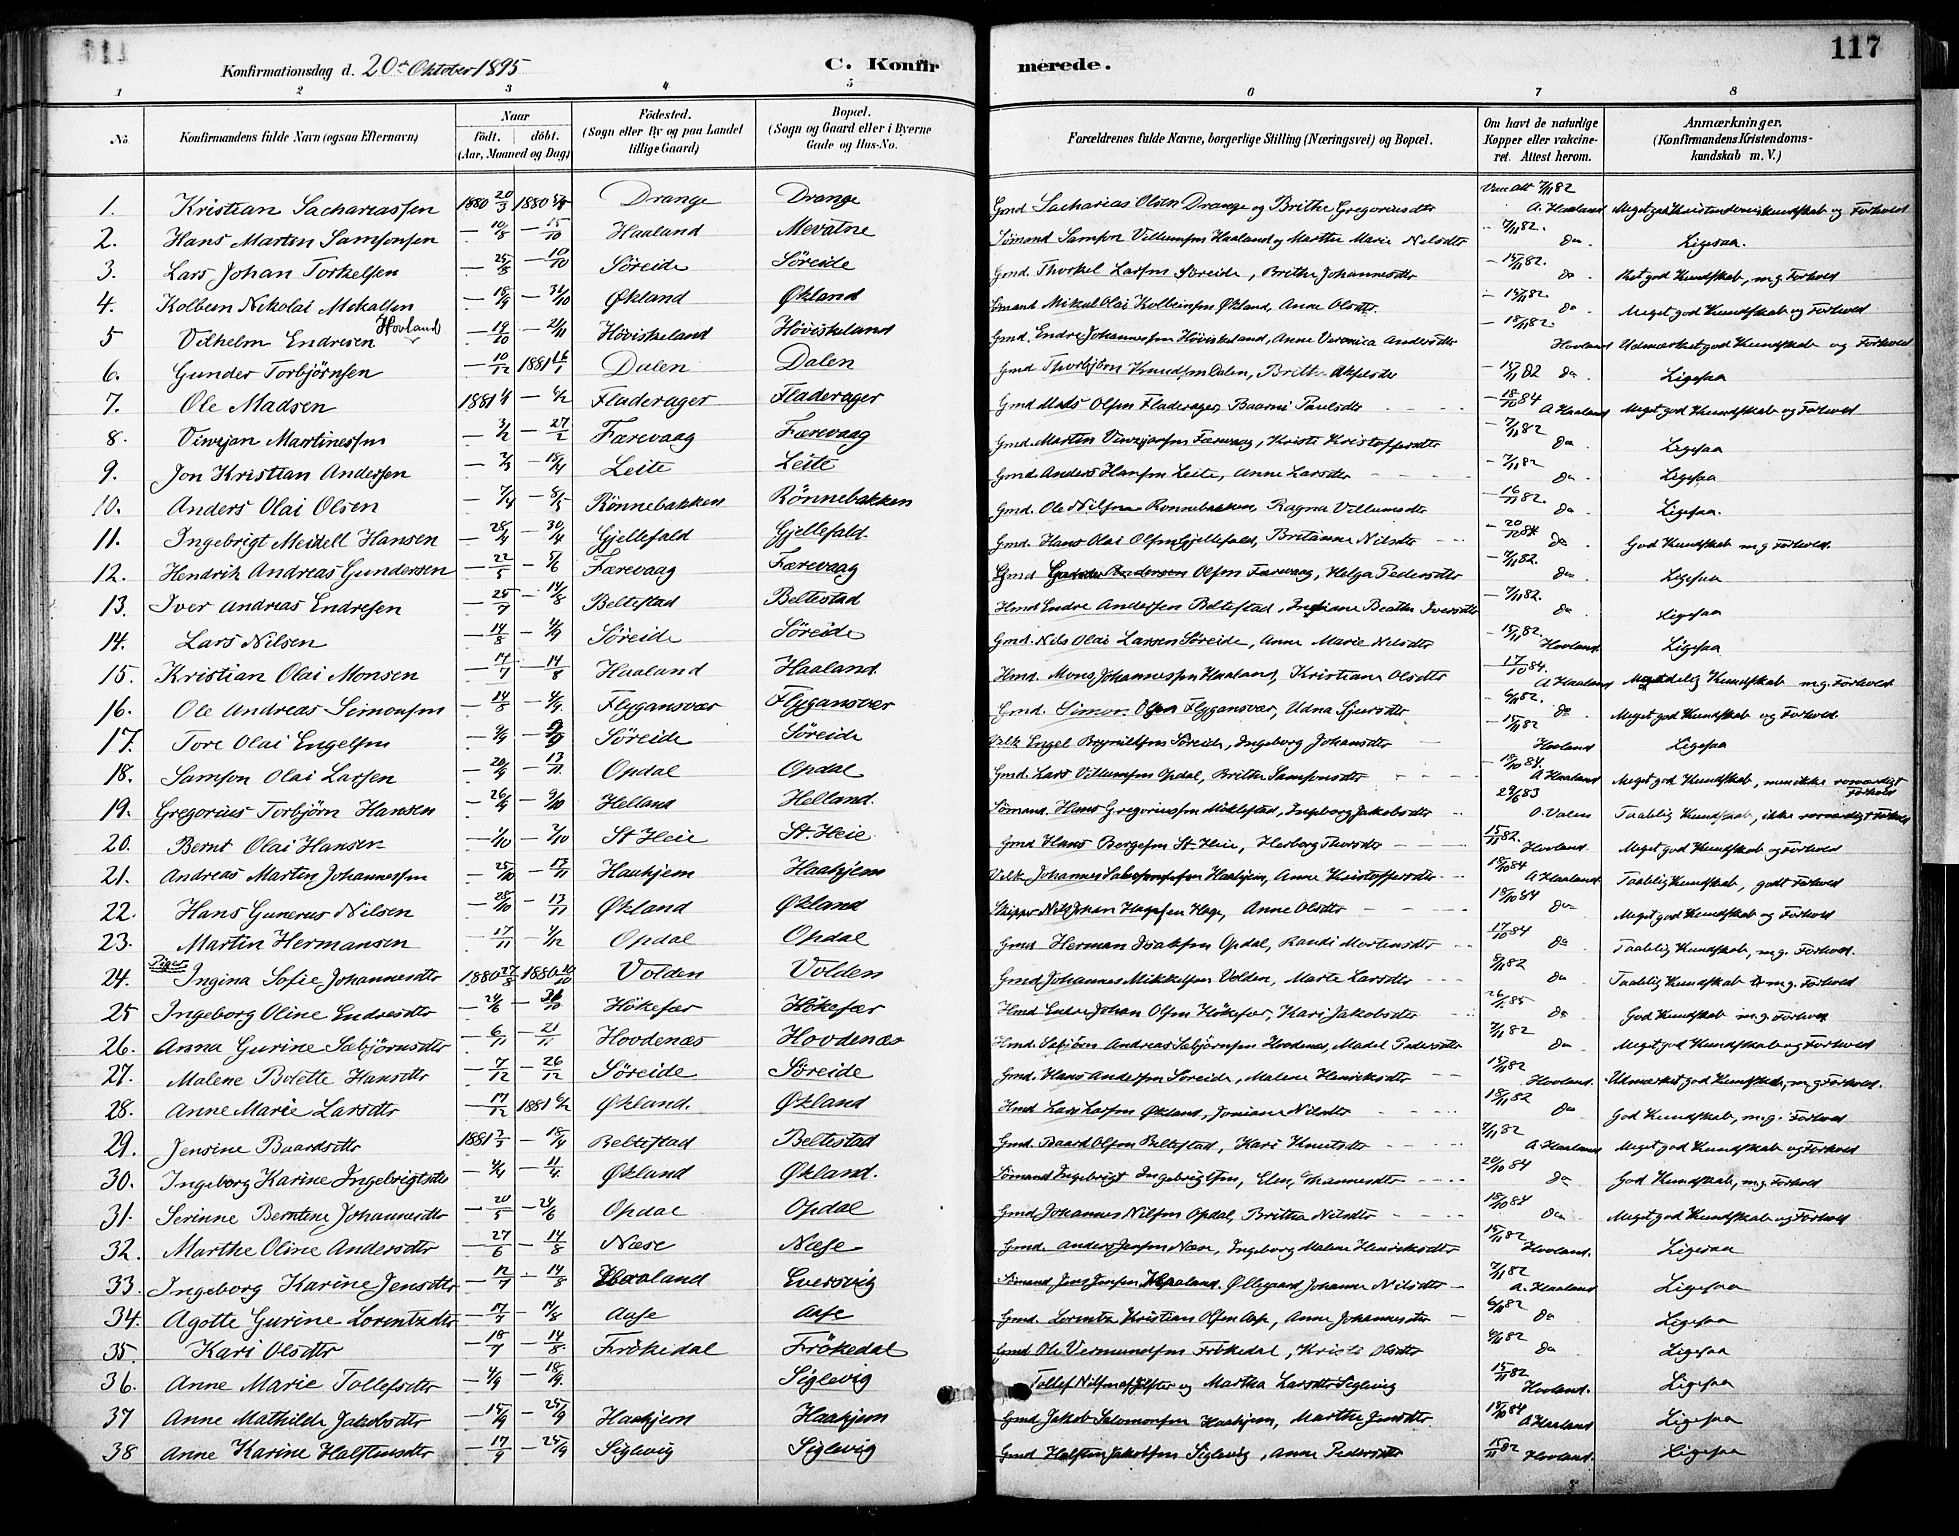 117
Konfirmationsdag d. 20de Oktober 1895
C. Konfirmerede.
1 2 3 4 5 6 7 8
No. Konfirmandens fulde Navn (ogsaa Efternavn) Naar födt. döbt. (Aar, Maaned og Dag) Födested. (Sogn eller By og paa Landet tillige Gaard) Bopæl. (Sogn og Gaard eller i Byerne Gade og Hus-No. Forældrenes fulde Navne, borgerlige Stilling (Næringsvei) og Bopæl. Om havt de naturlige Kopper eller vakcineret. Attest herom. Anmærkninger. (Konfirmandens Kristendomskundskab m. V.)
1. Kristian Sachariassen 1880 20/3 1880 Drange Drange Gmd Sacharias Olsen Drange og Brithe Gregoriusdtr A. Haaland Meget god Kristendomskundskab og Forhold
2. Hans Martin Samsonsen — 10/8 — 15/10 Haaland Mevatne Sömand Samson Villumsen Haaland og Marthe Marie Nilsdtr Do Ligesaa.
3. Lars Johan Torkelsen — 25/8 — 10/10 Söreide Söreide Gmd. Thorkel Larsen Söreide, Brithe Johannesdtr — 15/11 82. Do god Kundskab, m.g. Forhold
4. Kolbein Nikolai Mikalsen — 18/9 — 31/10 Økland Økland Sömand Mikal Olai Kolbeinsen Økland, Anne Olsdtr. — 15/11 82 Do Meget god Kundskab og Forhold
5 Vilhelm Endresen Hovland — 14/10 — 21/11 Höviskeland Höviskeland Gmd. Endre Johannessen Höviskeland, Anne Veronica Andersdtr — 18/11 82. Hovland Udmærket god Kundskab og Forhold
6. Gunder Torbjörnsen — 10/12 1881 16/1 Dalen Dalen Gmd Thorbjörn Knudsen Dalen, Brithe Do. Ligesaa
7. Ole Madsen 1881 — 6/2 Fladerager Fladerager Gmd Mads Olsen Fladerager, Baarni Paulsdtr — 18/10 84 A Haaland Meget god Kundskab og Forhold
8. Vivejan Martinessen — 3/2 — 27/2 Færevaag Færevaag Gmd. Martin Vivejansen Færevaag, Kristi Kristoffersdtr — 7/11 82 Do Ligesaa
9. Jon Kristian Andersen — — 15/4 Leite Leite Gmd Anders Hansen Leite, Anne Larsdtr — 7/11 82 Do Ligesaa
10. Anders Olai Olsen — 7/4 — 8/5 Rönnebakken Rönnebakken Gmd. Ole Nilsen Ronnebakken Ragna Villumsdtr — 16/11 82. Do Ligesaa.
11. Ingebrigt Meidell Hansen — 28/4 — 30/4 Gjellefald Gjellefald. Gmd. Hans Olai Olsen Gjellefald, Britanne Nilsdtr — 20/10 84 Do God Kundskab m.g Forhold.
12. Hendrik Andreas Gundersen — 22/5 — 5/6 Færevaag Færevaag Gmd Olsen Færevaag, Helga Pedersdtr — 7/11 82. Do Ligesaa
13. Iver Andreas Endresen — 25/7 — 14/8 Beltestad Beltestad Hmd Endre Andersen Beltestad, Beathe Iversdtr — 7/11 82. Do Ligesaa
14. Lars Nilsen — 14/8 — 4/9 Söreide Söreide Gmd. Nils Olai Larsen Söreide, Anne Marie Nilsdtr — 15/11 82 Hovland Ligesaa
15. Kristian Olai Monsen — 17/7 — 14/8 Haaland Haaland. Hmd. Mons Johannessen Haaland, Kristiane Olsdtr — 17/10 84. A Haaland Kundskab m.g. Forhold
16. Ole Andreas Simonsen — 14/8 — 4/9. Flygansvær Flygansvær Gmd. Simon Olsen Flygansvær, Udna Sjursdtr — 6/11 82. Do Meget god Kundskab og Forhold.
17. Tore Olai Engelsen Söreide Söreide Engel Söreide, Ingeborg Johansdtr — 15/11 82 Hovland Ligesaa
18. Samson Olai Larsen — 20/9 — 13/11 Opdal Opdal Gmd. Lars Villumsen Opdal, Brithe Samsonsdtr A Haaland Meget god Kundskab, men ikke rosværdigt Forhold
19. Gregorius Torbjörn Hansen — 26/9 — 9/10 Helland Helland. Sömand. Hans Gregoriussen Miklestad, Ingeborg Jakobsdtr 29/6 83 O. Valen Taalelig Kundskab, ikke rosværdigt Forhold
20. Bernt Olai Hansen — 1/10 St. Heie St. Heie. Gmd Hans Börgesen St. Heie, Herborg Thorsdtr 15/11 82. Hovland. Meget god Kundskab og Forhold
21. Andreas Martin Johannessen — 25/10 — 13/11 Haakjem Haakjem Johannes Haakjem, Anne Kristoffersdtr 18/10 84 A Haaland Taalelig Kundskab, godt Forhold
22. Hans Gunerus Nilsen — 28/10 — 13/11 Økland Økland Skipper Nils Johan Anne Olsdtr 18/10 84 Do Meget god Kundskab og Forhold
23. Martin Hermansen — 17/11 — 4/12 Opdal Opdal Gmd Herman Isaksen Opdal, Randi Mortensdtr 17/10 84 Do Taalelig Kundskab, m.g. Forhold
Piger
24. Ingina Sofie Johannesdtr 1880 27/8 1880 Volden Volden Gmd Johannes Mikkelsen Volden, Marte Larsdtr 8/11 82 Do Taalelig Kundskab m.g. Forhold
25 Ingeborg Oline Endresdtr — Hökefær Hökefær Hmd Endre Johan Olsen Hökefær, Kari Jakobsdtr Do God Kundskab m.g. Forhold
26. Anna Gurine Sæbjörnsdtr — 6/11 — 21/11 Hovdenæs Hovdenæs Hmd. Sæbjörn Andreas Sæbjörnsen Hovdenæs, Madel Pedersdtr 7/11 82 Do Meget god Kundskab og Forhold
27. Malene Bolette Hansdtr — 7/12 — 26/12 Söreide Söreide Gmd. Hans Andersen Söreide, Malene Henriksdtr 15/11 82 Hovland. Udmærket god Kundskab, m.g. Forhold.
28. Anne Marie Larsdtr — 17/12 1881 6/2 Økland. Økland Hmd Lars Larsen Økland, Nilsdtr 15/11 82 Do God Kundskab, m.g. Forhold
29. Jensine Baardsdtr 1881 — 18/4 Beltestad Beltestad Gmd. Baard Olsen Beltestad, Kari Knutsdtr 7/11 82 A Haaland Meget god Kundskab og Forhold
30. Ingeborg Karine Ingebrigtsdtr — 4/4 — 11/4. Økland Økland. Sömand Ingebrigt Ingebrigtsen, 20/10 84 Do God Kundskab, m.g. Forhold
31. Serinne Berntine Johannesdtr — 20/5 — 24/6 Opdal Opdal Gmd Johannes Nilsen Opdal, Britha Nilsdtr 18/10 84 Do Meget god Kundskab og Forhold
32. Marthe Oline Andersdtr — 27/6 — 14/8 Næse Næse Gmd. Anders Jensen Næse, Ingeborg Malene Henriksdtr 15/11 82 Hovland. Ligesaa
33. Ingeborg Karine Jensdtr — 12/7 — 14/8 Haaland Eversvig Sömand Jens Jensen Haaland. Øllegaard Johanne Nilsdtr 7/11 82 A. Haaland Ligesaa
34. Agotte Gurine Lorentzdtr — 17/7 — 14/8 Aase Aase Gmd. Lorentz Kristian Olsen Aase, Anne Johannesdtr 6/11 82 Do Ligesaa
35. Kari Olsdtr — 18/7 — 14/8. Frökedal Frökedal Gmd Ole Vermundsen Frökedal, Kristi Olsdtr 6/11 82 Do Ligesaa
36. Anne Marie Tollefsdtr — 4/9 — 18/9. Siglevig Tollef Nilsen og Martha Larsdtr Siglevig 15/11 82 Hovland. Ligesaa
37 Anne Mathilde Jakobsdtr — 15/9 — 25/9 Haakjem Haakjem Gmd Jakob Salomonsen Haakjem, Marthe Jensdtr. 18/10 84 A Haaland Ligesaa
38 Anne Karine Halstensdtr — 17/9 — 25/9 Siglevig Siglevig Gmd Halsten Jakobsen Siglevig, Anne Pedersdtr 15/11 82 Hovland. Ligesaa